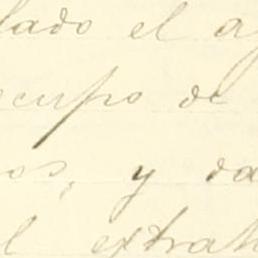 lado el a
cupo de
os, y da
l extra